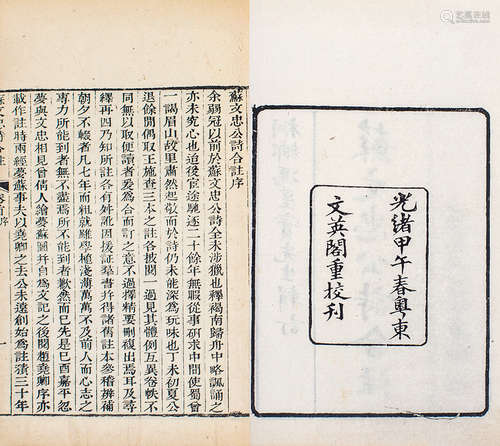 光緒甲午春粵東
文英閣重校刊
蘇文忠公詩合註序
余弱冠以前於蘇文忠公詩全未涉獵也釋褐南歸舟中略諷誦之
亦未究心也迨後官途驅逐二十餘年無暇從事研求中間使蜀曾
一謁眉山故里肅然起敬而於詩仍未能深為玩味也丁未初夏公
退餘閒偶取王施查三本之註各披閱一過見其體例互異卷帙不
同無以取便讀者爰為合而訂之意不過擇精要刪複出焉耳及尋
繹再四乃知所註各有舛訛因援証羣書并得諸舊註本參稽辨補
朝夕不輟者凡七年而粗就雖學植淺薄萬萬不及前人而心志之
專力所能到者無不盡焉所不能到者歉然而已先是己酉嘉平忽
夢與文忠相見曾倩人繪夢蘇圖并自為文記之後閱趙堯卿序亦
載作註時兩經夢蘇事夫以堯卿之去公未遠創始為註積三十年
蘇文忠詩合註
卷首序